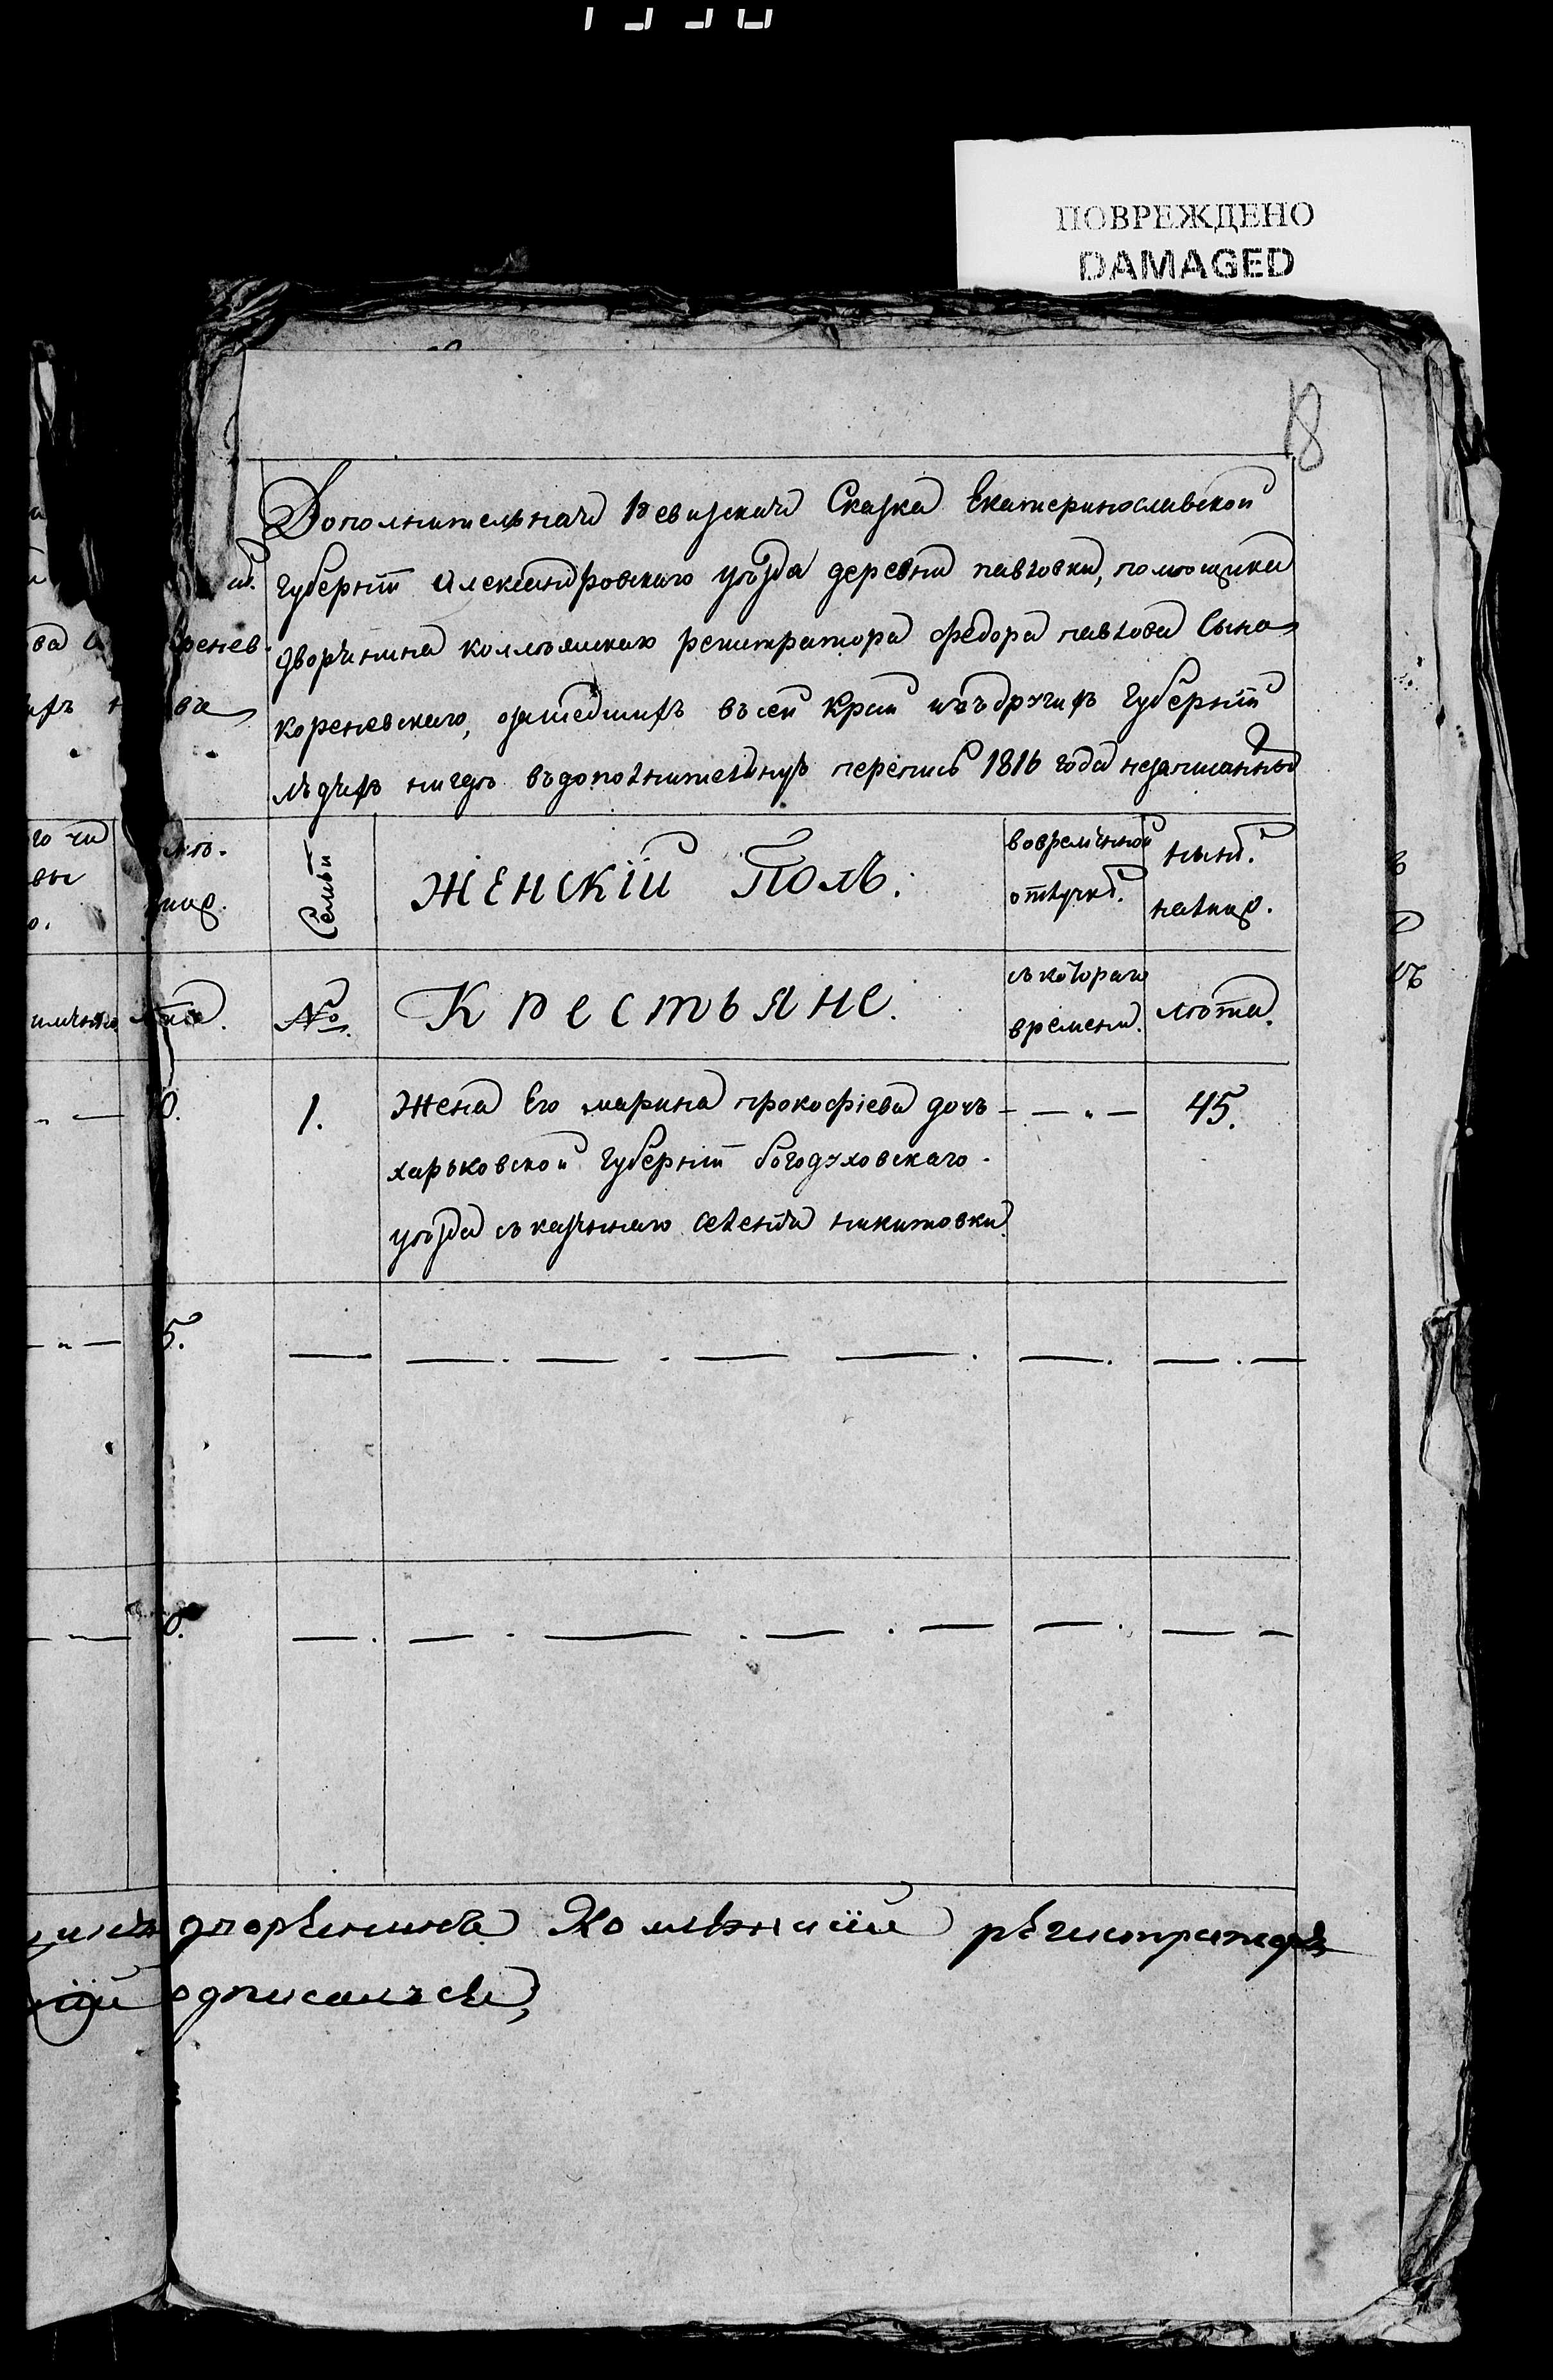 ПОВРЕЖДЕНО
DAMAGED
18
Дополнительная Ревизская Сказка Екатеринославской
губернїи Александровскаго уѣзда деревни павловки, помѣщика
дворянина коллѣжскаго регистратора федора павлова Сына
кореневскаго, озашедшихъ въсей Край изъдругихъ Губернїй
людяхъ нигдѣ въдополнительную перепись 1816 года незаписанных
Семьи
Женскїй Полъ.
вовременной
отлучкѣ.
нынѣ.
налицо.
№.
Крестьяне.
съкотораго
времени.
лѣта.
1.
Жена Его марина прокофїева дочь
45.
харьковской губернїи богодуховскаго
уѣзда съказеннаго селенїя никитовки.
дворенинъ Колѣжскїй регистраторъ
одписалъся